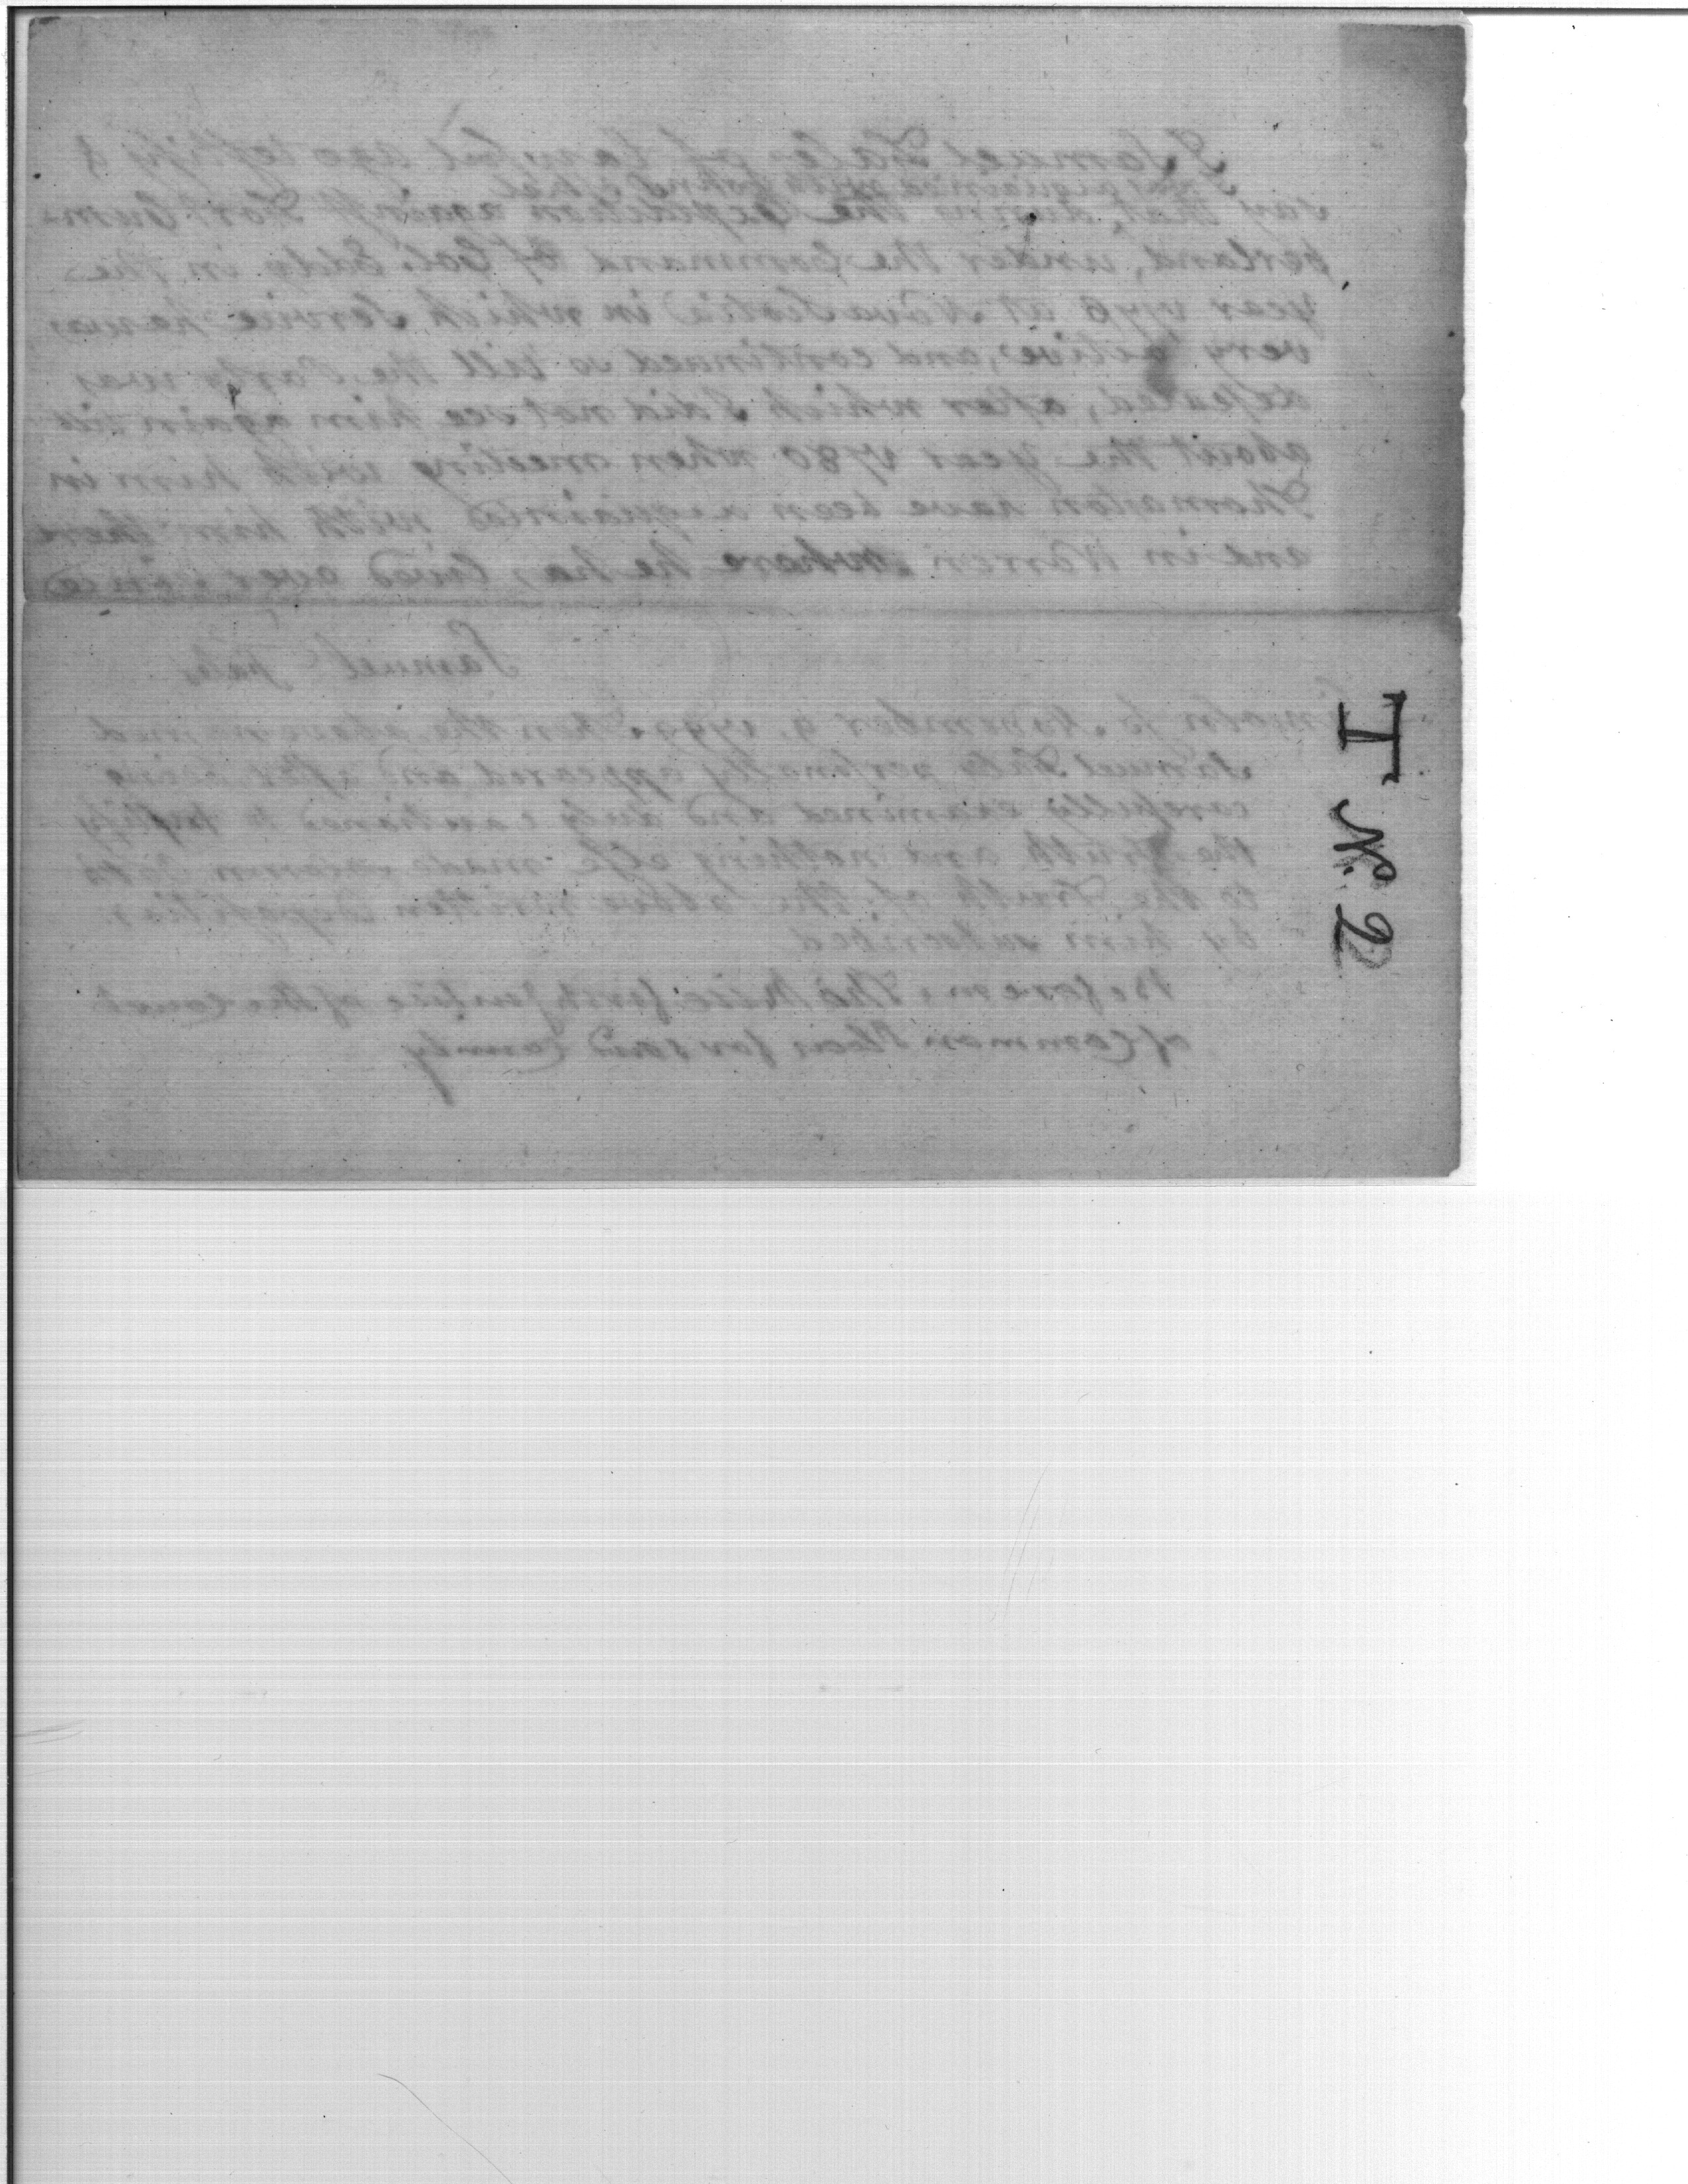 I Samuel Fales of lawful age testify &
I was acquainted with John
say that, during the Expedition against Fort Cum-
berland, under the Command of Col. Eddy in the
year 1776 at Nova Scotia in which Service he was
very active, and continued so till the Party was
defeated, after which I did not see him again till
about the year 1780 when meeting with him in
Thomaston have been acquainted with him there
and in Warren where he has lived ever since
Samuel Fales
Lincoln Ss November 9. Then the above named
Samuel Fales personally appeared and after being
carefully examined and duly cautioned to testify
the Truth and nothing else made solemn Oath
to the Truth of the above written deposition
by him subscribed
Before me first Justice of the Court
of Common Pleas for said County
I No. 2